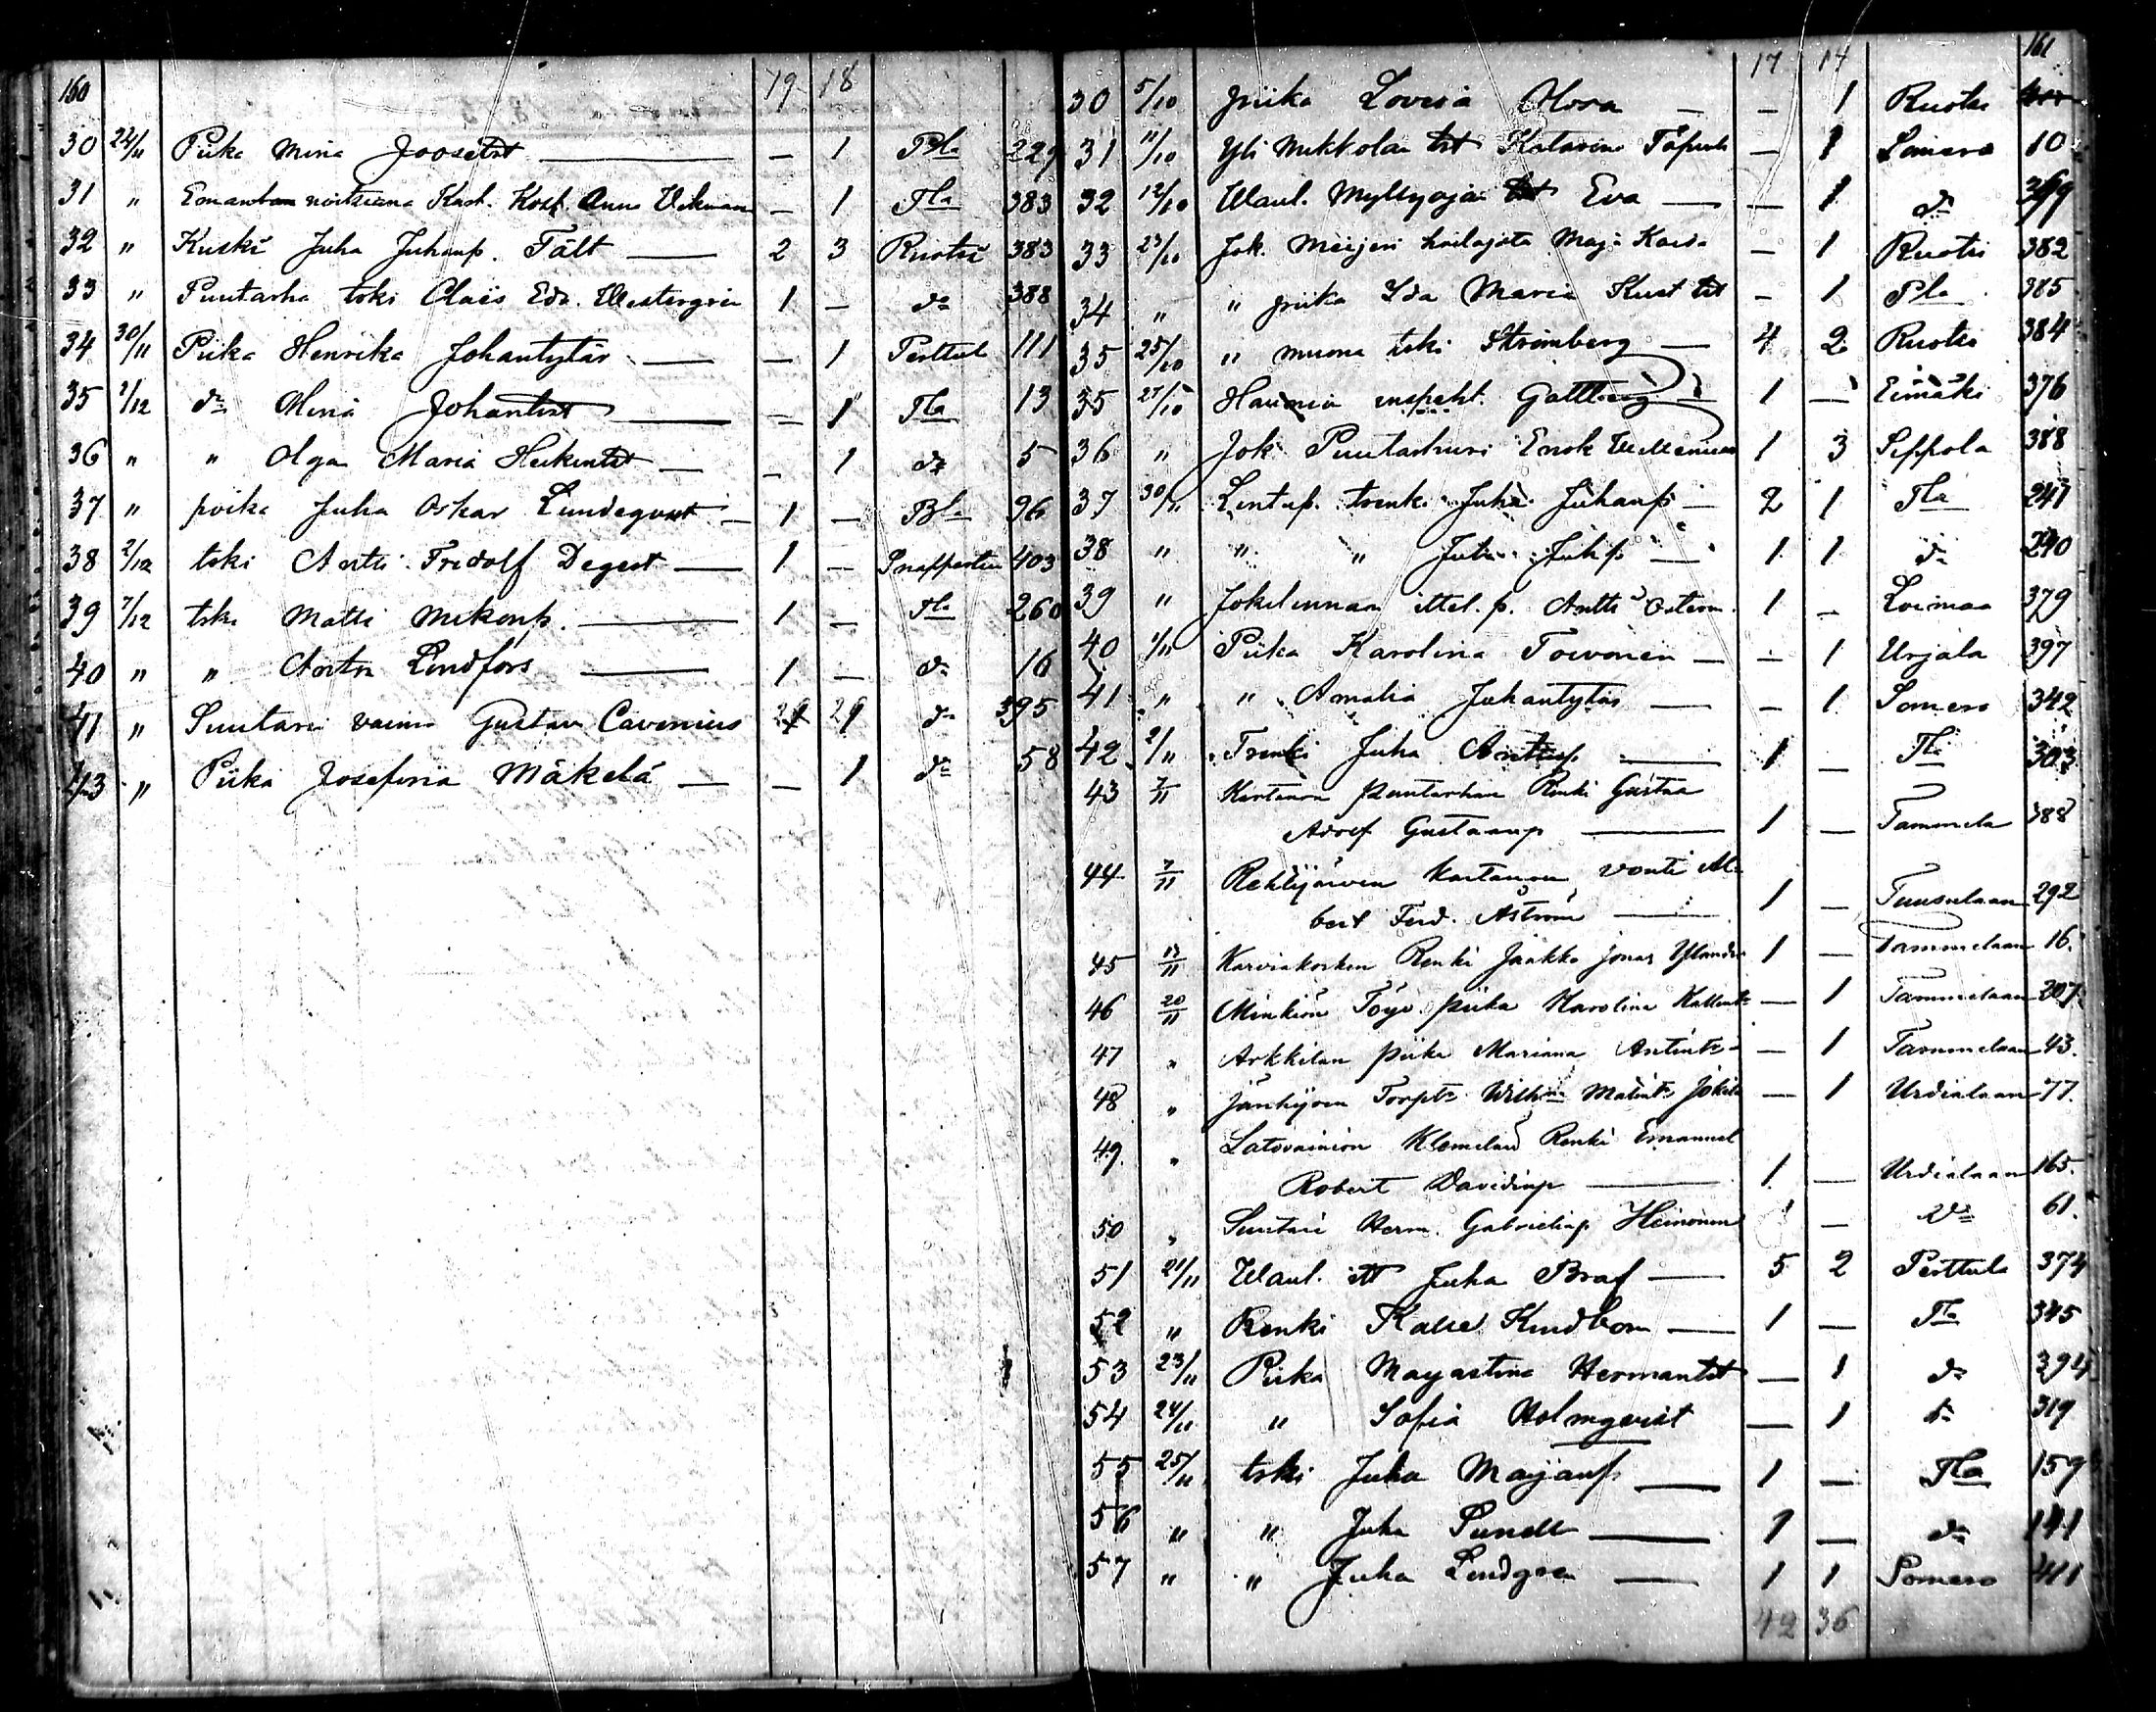 160
19 18
30 24/11 Piika Mina Joosetr — — 1 Pla 229
31 " Emantam Kust. Anna Vikman — 1 Tla 383
32 " Kuski Juha Juhanp. Tält — 2 3 Ruotsi 383
33 " Puutarha tski Claës Edv. Westergrin 1 — do 388
34 30/11 Piika Henrika Johantytär — — 1 Perttul 111
35 1/12 do Mina Johantrt — — 1 Tla 13
36 " " Olga Maria Heikintrt — — 1 do 5
37 " poika Juha Oskar Lundeqvist — 1 — Bla 96
38 2/12 tski Antti Fridolf Degert — 1 — Snappertun 403
39 7/12 tski Matti Mikonp. — 1 — Tla 260
40 " " Antti Lindfors — 1 — do 16
41 " Suutari vaimo Gustava Cavenius 21 do 395
43 " Piika Josefina Mäkelä — — 1 do 58
161
17 14
30 5/10 piika Lovisa — — 1 Ruotsi
31 11/10 Yli Mikkolan trt Katarina — 1 Somero 10
32 12/10 Waul. Myllyoja trt Eva — — 1 do
33 23/10 Jok. Meijeri Maja Kaisa — 1 Ruotsi 382
34 " " piika Ida Maria Kust trt — 1 Pla 385
35 25/10 " muona tski Strömberg — 4 2 Ruotsi 384
35 27/10 Haunia inspekt. Gottberg 1 — Eimäki 376
36 " Jok Puutarhuri Enok Wellenius 1 3 Seppola 388
37 30/10 trenki Juha Juhanp — 2 1 Tla 241
38 " " " Juha Juhp — 1 1 do 240
39 " Jokilinnan ittel. p. Antti Österm. 1 — Loimaa 379
40 1/11 Piika Karolina Toivonen — — 1 Urjala 397
41 " " Amalia Juhantytär — — 1 Somero 342
42 2/11 Trenki Juha Antinp — 1 — Tla 303
43 7/11 Kartanon puutarhan Renki Gustaa
Adolf Gustaanp — 1 — Tammela 388
44 7/11 Rehtijärven kartanon vouti Al-
bert Ferd. Åström — 1 — Tuusulaan 292
45 13/11 Karviakosken Renki Jaakko Jonas Ylander 1 — Tammelaan 16.
46 20/11 Minkiön Töyr. piika Karolina Kallent: — 1 Tammelaan 207.
47 " Arkkilan piika Mariana Antint: — 1 Tammelaan 43.
48 " Jänhijoen Torpt: Wilhna Matint: Jokila — 1 Urdialaan 77.
49 " Latovainion Klemelan Renki Emanuel
Robert Davidinp — 1 — Urdialaan 165.
50 " Suutari Herm. Gabrielinp Heinonen 1 — do 61.
51 21/11 Waul. itt Juha Braf — 5 2 Perttula 374
52 " Renki Kalle Lindbom — 1 — Tla 345
53 23/11 Piika Mayastina Hermantrt — 1 do 394
54 24/11 " Sofia Holmqvist — 1 do 319
55 25/11 tski Juha Majanp — 1 — Tla 159
56 " " Juha Sundll — 1 — do 141
57 " " Juha Lindgren — 1 1 Somero 411
42 36